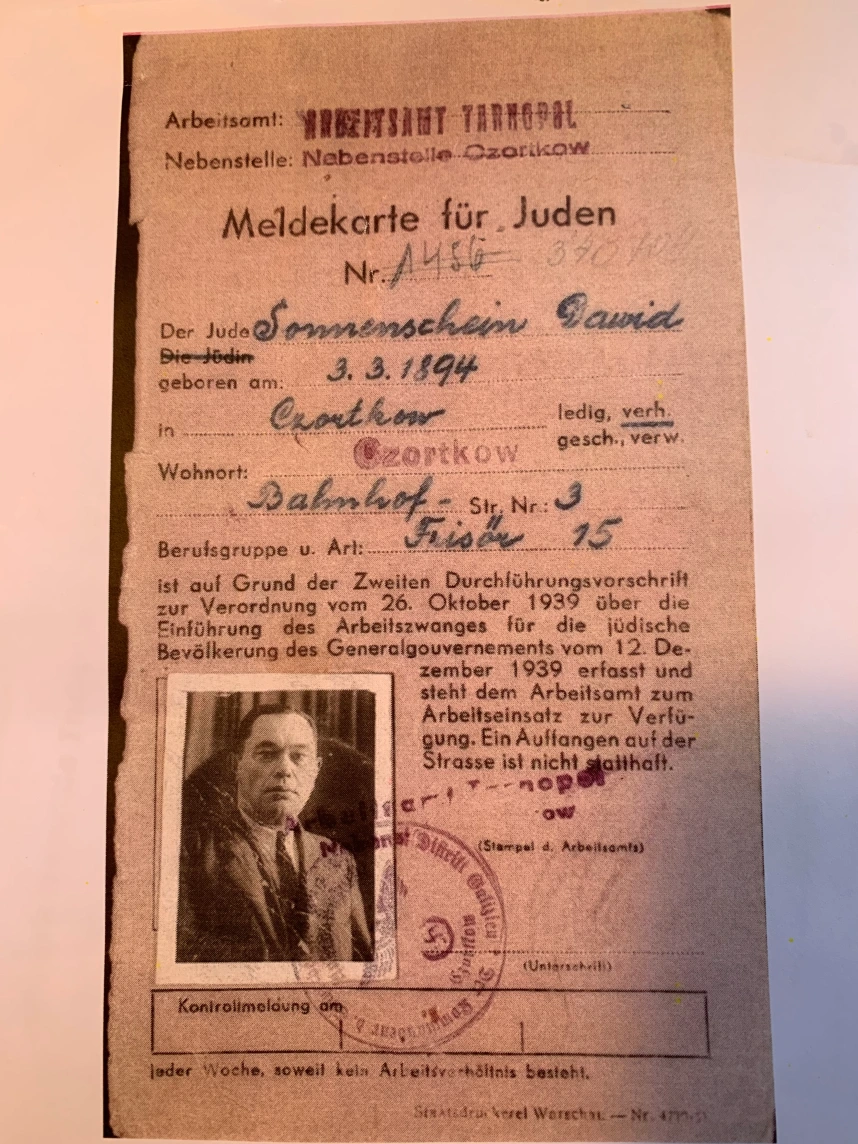 Arbeitsamt: ARBEITSAMT TARNOPOL
Nebenstelle: Nebenstelle Czortkow
Meldekarte für Juden
Nr. 1456
Der Jude Sonnenschein Dawid
Die Jüdin
geboren am: 3. 3. 1894
in Czortkow ledig, verh.
gesch., verw.
Czortkow
Wohnort:
Bahnhof- Str. Nr.: 3
Berufsgruppe u. Art: Frisör 15
ist auf Grund der Zweiten Durchführungsvorschrift
zur Verordnung vom 26. Oktober 1939 über die
Einführung des Arbeitszwanges für die jüdische
Bevölkerung des Generalgouvernements vom 12. De-
zember 1939 erfasst und
steht dem Arbeitsamt zum
Arbeitseinsatz zur Verfü-
gung. Ein Auffangen auf der
Strasse ist nicht statthaft.
(Stampel d. Arbeitsamts)
Distrikt Galizien
(Unterschrift)
Kontrollmeldung am
jeder Woche, soweit kein Arbeitsverhältnis besteht.
Staatsdruckerei Warschau — Nr.